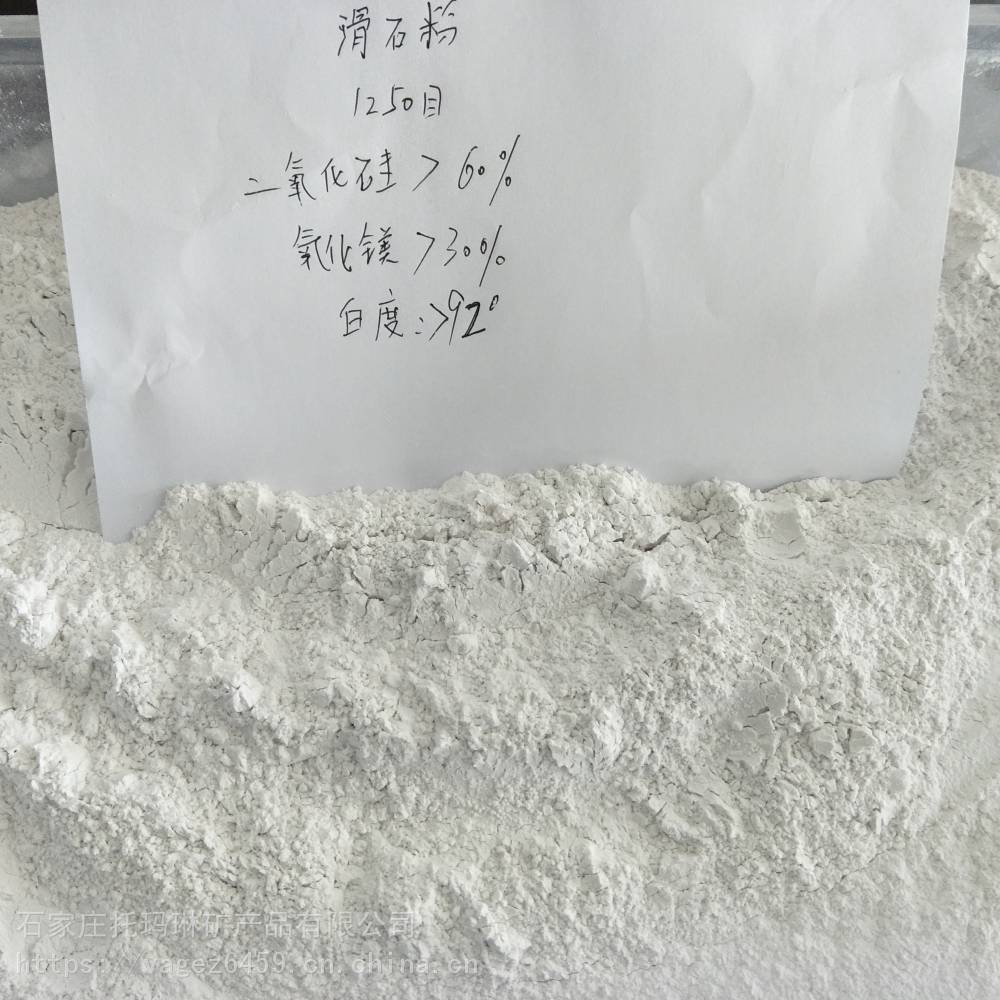 滑石粉
1250目
二氧化硅>60%
氧化镁>30%
白度:>92°
石家庄托玛琳矿产品有限公司
https://vagez6459.cn.china.cn